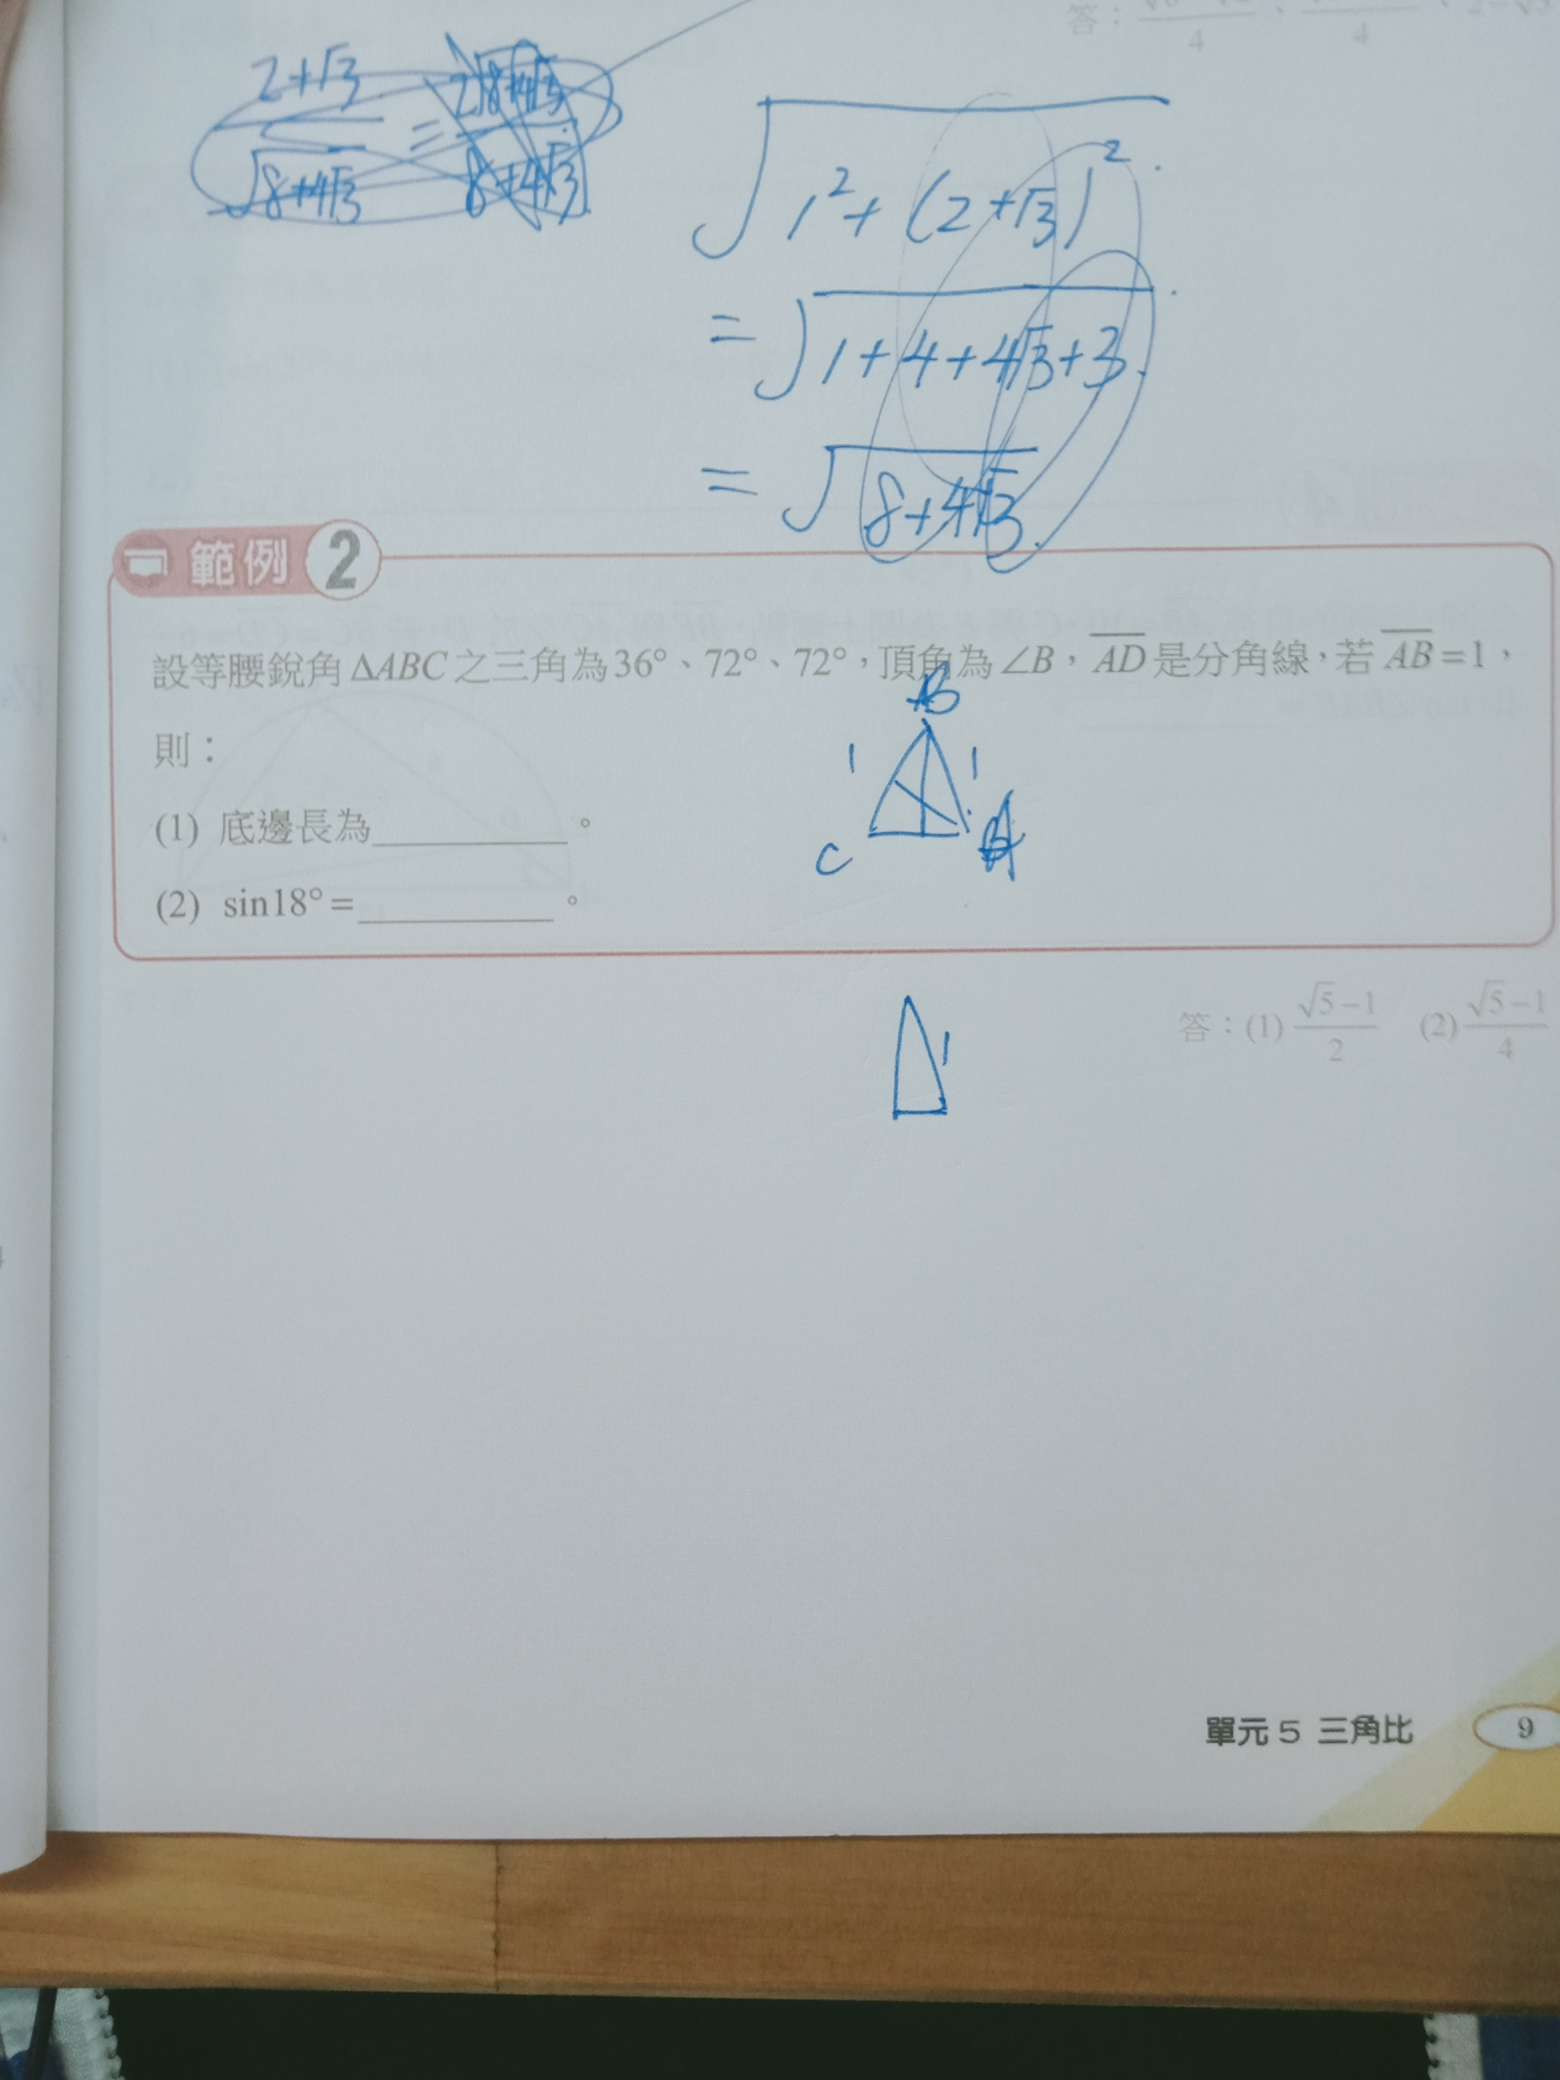 答：
4
4
2+√3/√8+4√3 = 2√8+4√3/8+4√3
√1²+(2+√3)²
=√1+4+4√3+3
=√8+4√3
範例 2
設等腰銳角ΔABC之三角為36°、72°、72°，頂角為∠B，AD是分角線，若AB=1，
B
則：
1 1
(1) 底邊長為__________。
C A
(2) sin18°=__________。
答：(1) √5−1/2 (2) √5−1/4
1
單元 5 三角比 9